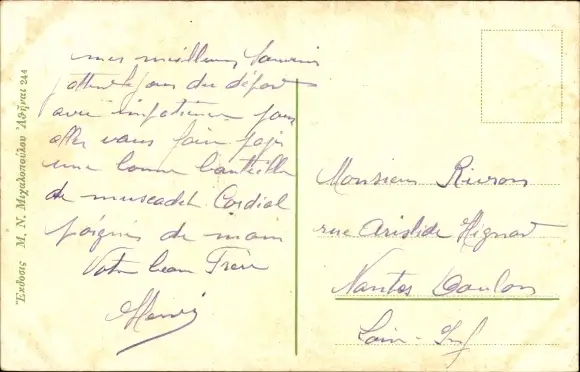 mes meilleurs souvenirs
attend le jour du départ
avec impatience pour
aller vous faire
une bonne bouteille
de muscadet. Cordial
poignés de main
Votre beau Frère
Henri
Monsieur Rivron
rue Aristide
Nantes Doulon
Loire-Inf
Ἔκδοσις Μ. Ν. Μιχαλοπούλου Ἀθῆναι 244